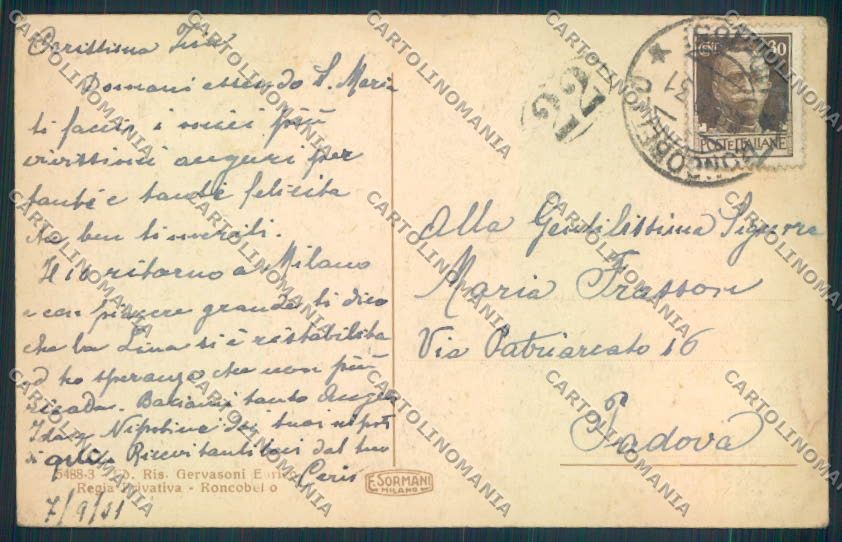 Carissima
Domani essendo S. Maria
ti faccio i miei più
vivissimi auguri per
tante e tante felicità
che ben ti meriti.
ritorno a Milano
e con piacere grande ti dico
che la Lina si è ristabilita
ed ho speranza che non più
ricada. Baciami tanto
Nipotine dei tuoi nipoti
di qui. Ricevi tanti baci dal tuo
Ceris
7/9/31
5488-3 - Ed. Ris. Gervasoni
Regia Privativa - Roncobello
F. SORMANI
MILANO
22
RONCOBELLO
CENT 30
POSTE ITALIANE
Alla Gentilissima Signora
Maria Frasson
Via Patriarcato 16
Padova
CARTOLINOMANIA